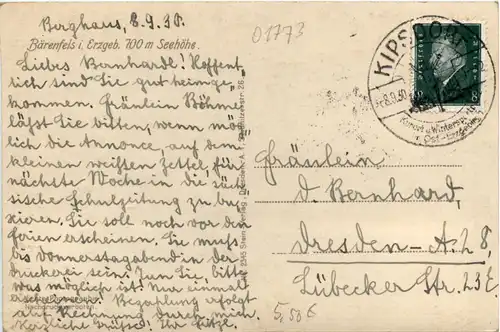 Berghaus, 8.9.30.
01773
Bärenfels i. Erzgeb. 700 m Seehöhe.
Liebes Bernhardl! Hoffent-
lich sind Sie gut heimge-
kommen. Fräulein Böhme
läßt Sie bitten, wenn mög-
lich die Annonce, auf dem
kleinen weißen Zettel, für
nächste Woche in die säch-
sische Schulzeitung zu bug-
sieren. Sie soll noch vor den
Ferien erscheinen. Sie muß
bis Donnerstagabend in der
Druckerei sein. Tun Sie, bitte
was möglich ist! Nur einmal
erscheinen. Bezahlung erfolgt
auf Rechnung durch mich.
Herzliche Grüße! Ihr
Nachdruck verboten.
Stern Verlag, Dresden-A. 1
KIPSDORF
8.9.30
Kurort u. Wintersportpl.
Ost-Erzgebirge
Fräulein
D. Bernhard,
Dresden-A. 28
Lübecker Str.
5,50 €